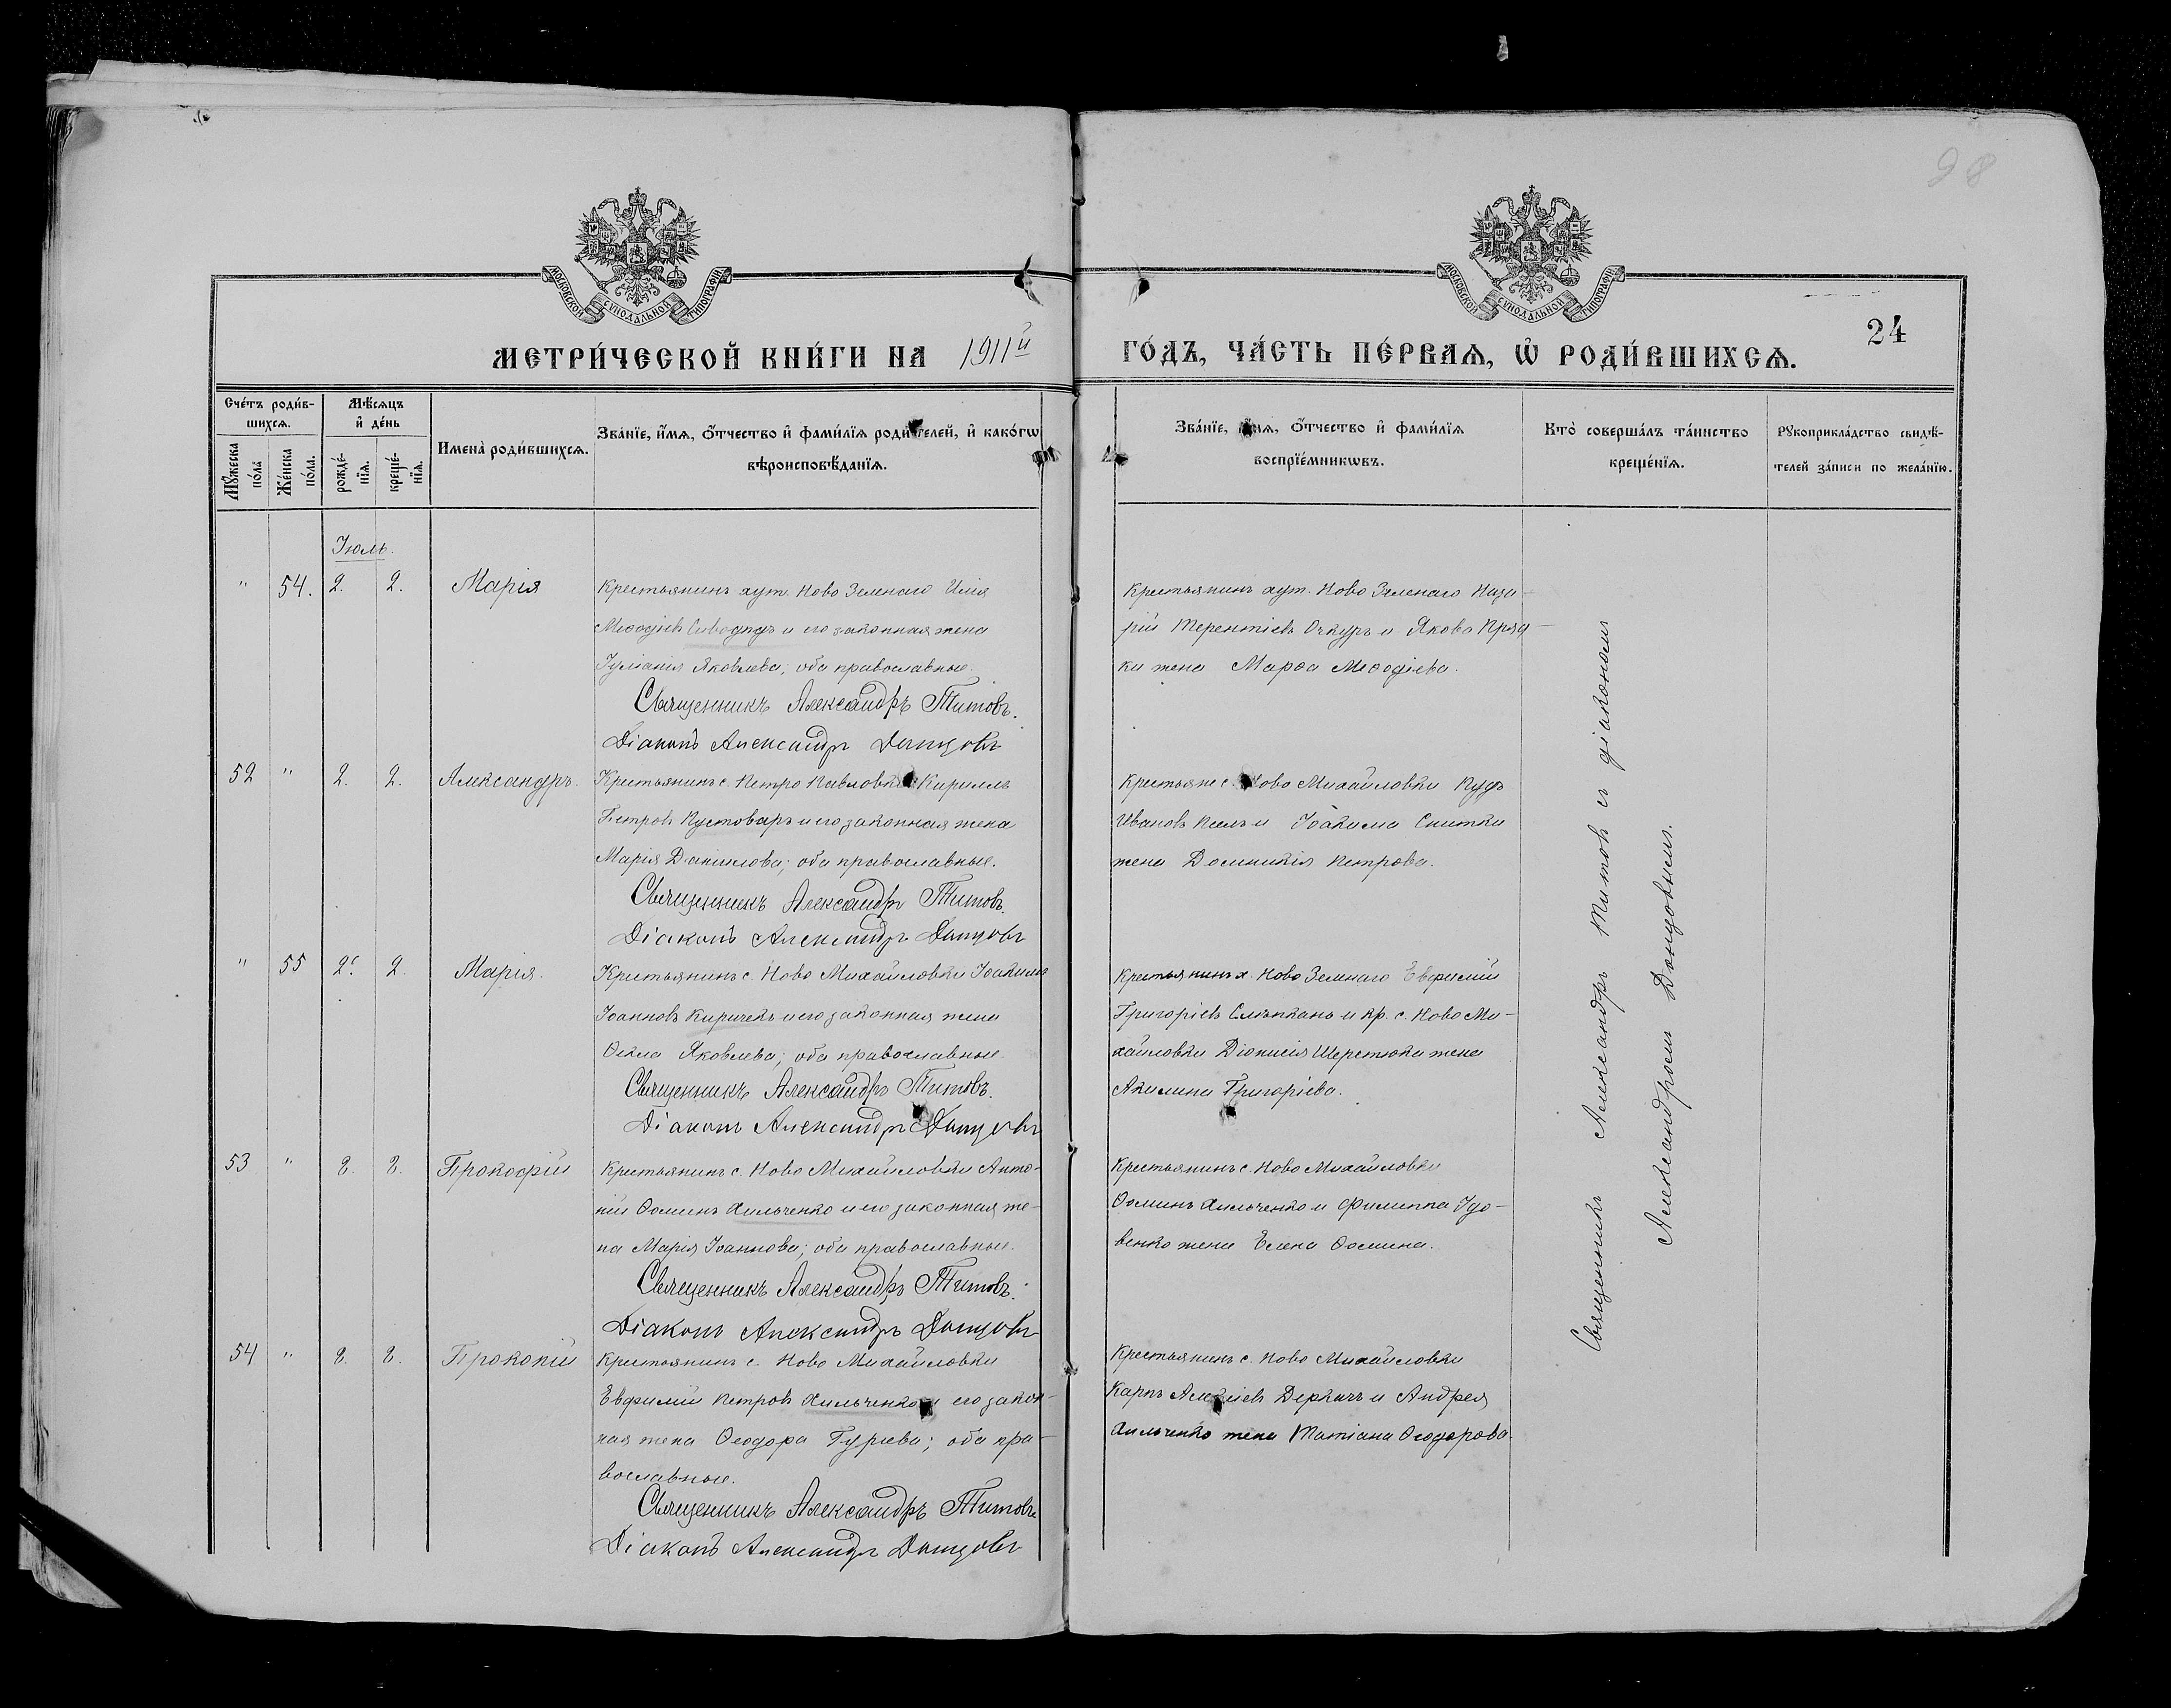 98
МОСКОВСКОЙ СѴНОДАЛЬНОЙ ТИПОГРАФІИ
МОСКОВСКОЙ СѴНОДАЛЬНОЙ ТИПОГРАФІИ
24
МЕТРИ́ЧЕСКОЙ КНИ́ГИ НА 1911й
ГО́ДЪ, ЧА́СТЬ ПЕ́РВАѦ, Ѽ РОДИ́ВШИХСѦ.
Сче́тъ роди́в-
шихсѧ.
Мꙋ́жеска по́ла
Же́нска по́ла.
Мѣ́сѧцъ
и҆ де́нь
рожде́-нїѧ.
креще́-нїѧ.
Имена̀ роди́вшихсѧ.
Зва́нїе, и҆́мѧ, ѻ҆́тчество и҆ фами́лїѧ роди́телей, и҆ како́гѡ
вѣроисповѣ́данїѧ.
Зва́нїе, и҆́мѧ, ѻ҆́тчество и҆ фами́лїѧ
воспрїе́мникѡвъ.
Кто̀ соверша́лъ та́инство
креще́нїѧ.
Рꙋкоприкла́дство свидѣ́-
телей за́писи по жела́нїю.
Іюль.
" 54. 2. 2. Марія
Крестьянинъ хут. Ново Зеленаго Илія
Меѳодіевъ и его законная жена
Іуліанія Яковлева; оба православные.
Священникъ Александръ Титовъ.
Діаконъ Александръ Донцовъ
Крестьянинъ хут. Ново Зеленаго Наза-
рій Терентіевъ Очкуръ и Якова Пряд-
ки жена Марѳа Меѳодіева.
52 " 2. 2. Александръ.
Крестьянинъ с. Петро Павловки Кириллъ
Петровъ Пустоваръ и его законная жена
Марія Даніилова; оба православные.
Священникъ Александръ Титовъ.
Діаконъ Александръ Донцовъ
Крестьяне с. Ново Михайловки
Ивановъ и Іоакима Снитки
жена Домникія Петрова.
" 55 2. 2 Марія.
Крестьянинъ с. Ново Михайловки Іоакимъ
Іоанновъ Киричекъ и его законная жена
Ѳекла Яковлева; оба православные.
Священникъ Александръ Титовъ.
Діаконъ Александръ Донцовъ
Крестьянинъ х. Ново Зеленаго Евфимій
Григоріевъ и кр. с. Ново Ми-
хайловки Діонисія Шерстюка жена
Акилина Григоріева.
53 " 8. 8. Прокофій
Крестьянинъ с. Ново Михайловки Анто-
ній Ѳоминъ Хильченко и его законная же-
на Марія Іоаннова; оба православные.
Священникъ Александръ Титовъ.
Діаконъ Александръ Донцовъ
Крестьянинъ с. Ново Михайловки
Ѳоминъ Хильченко и Филиппа Удо-
венко жена Елена Ѳомина.
54 " 8. 8. Прокопій
Крестьянинъ с. Ново Михайловки
Евфимій Петровъ Хильченко и его закон-
ная жена Ѳеодора Гуріева; оба пра-
вославные.
Священникъ Александръ Титовъ
Діаконъ Александръ Донцовъ
Крестьянинъ с. Ново Михайловки
Карпъ Алексіевъ Деркачъ и Андрея
Хильченко жена Татіана Ѳеодорова.
Священникъ Александръ Титовъ съ діакономъ
Александромъ Донцовымъ.